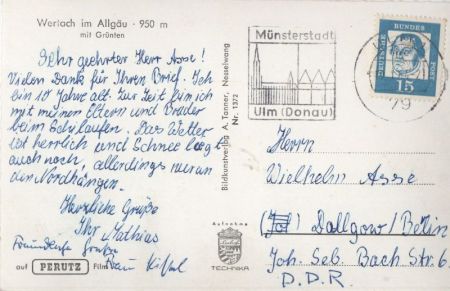 Wertach im Allgäu · 950 m
mit Grünten
Sehr geehrter Herr Asse!
Vielen Dank für Ihren Brief. Ich
bin 10 Jahre alt. Zur Zeit bin ich
mit meinen Eltern und Bruder
beim Schilaufen. Das Wetter
ist herrlich und Schnee liegt
auch noch, allerdings nur an
den Nordhängen.
Herzliche Grüße
Ihr Mathias
Freundliche Grüße
auf PERUTZ Film
Bildkunstverlag A. Tanner, Nesselwang
Nr. 1372
Aufnahme
TECHNIKA
Münsterstadt
Ulm (Donau)
79
DEUTSCHE BUNDESPOST
15
Herrn
Wielhelm Asse
Dallgow/Berlin
Joh. Seb. Bach Str. 6
D.D.R.